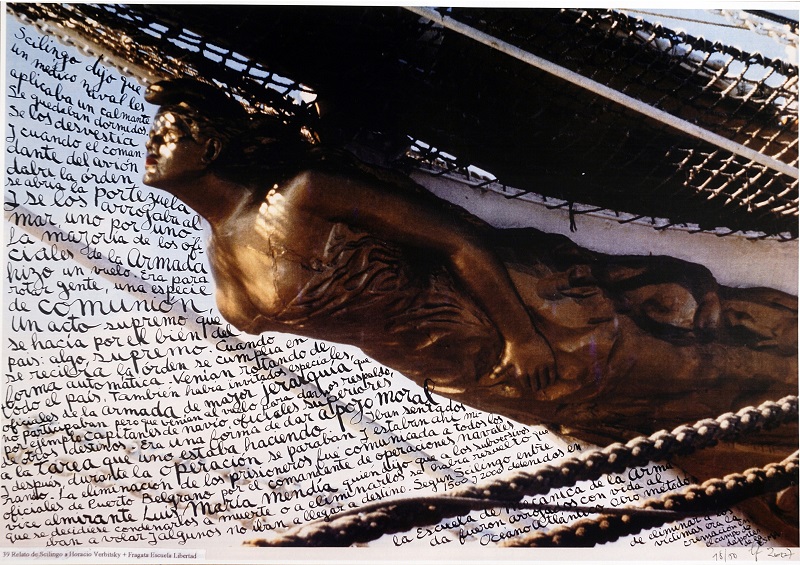 Scilingo dijo que
un médico naval les
aplicaba un calmante
Se quedaban dormidos.
Se los desvestía
y cuando el coman
dante del avión
daba la orden
se abría la portezuela
y se los arrojaba al
mar uno por uno.
La mayoría de los ofi
ciales de la Armada
hizo un vuelo. Era para
rotar gente, una especie
de comunión
Un acto supremo que
se hacía por el bien del
país: algo supremo. Cuando
se recibía la orden se cumplía en
forma automática. Venían rotando de
todo el país. También hubo invitados especiales,
oficiales de la armada de mayor jerarquía que
no participaban, pero que venían al vuelo para dar respaldo,
por ejemplo capitanes de navío, oficiales superiores
de otros destinos. Era una forma de dar apoyo moral
a la tarea que uno estaba haciendo. Iban sentados
después, durante la operación se paraban y estaban ahí mi
rando. La eliminación de los prisioneros fue comunicada a todos los
oficiales de Puerto Belgrano por el comandante de operaciones navales
vice almirante Luis María Mendía quien dijo que a los subversivos
que se decidiera condenarlos a muerte o a eliminarlos se había resuelto que
iban a volar y algunos no iban a llegar a destino. Según Scilingo entre
1500 y 2000 detenidos en
la Escuela de Mecánica de la Arma
da fueron arrojados con vida al
Océano Atlántico. Otro método
de eliminar a
víctimas era la
crema
el campo de
deportes
39 Relato de Scilingo a Horacio Verbitsky + Fragata Escuela Libertad
18/50